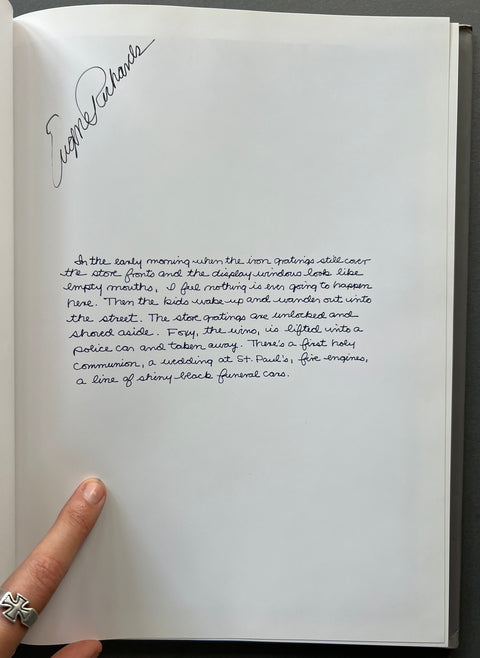 Eugene Richards
In the early morning when the iron gratings still cover
the store fronts and the display windows look like
empty mouths, I feel nothing is ever going to happen
here. Then the kids wake up and wander out into
the street. The store gratings are unlocked and
shoved aside. Foxy, the wino, is lifted into a
police car and taken away. There's a first holy
communion, a wedding at St. Paul's, fire engines,
a line of shiny black funeral cars.